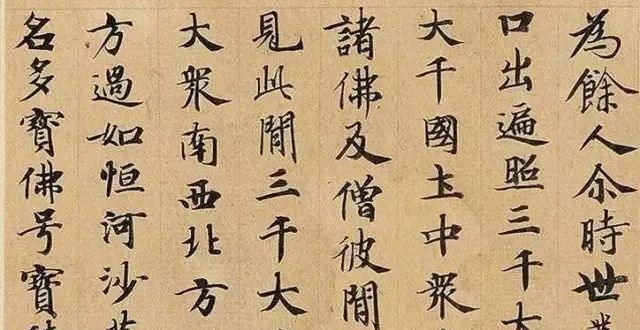 為餘人尒時世
口出遍照三千大
大千國土中衆
諸佛及僧彼間
見此間三千大
大衆南西北方
方過如恒河沙
名多寶佛号寶